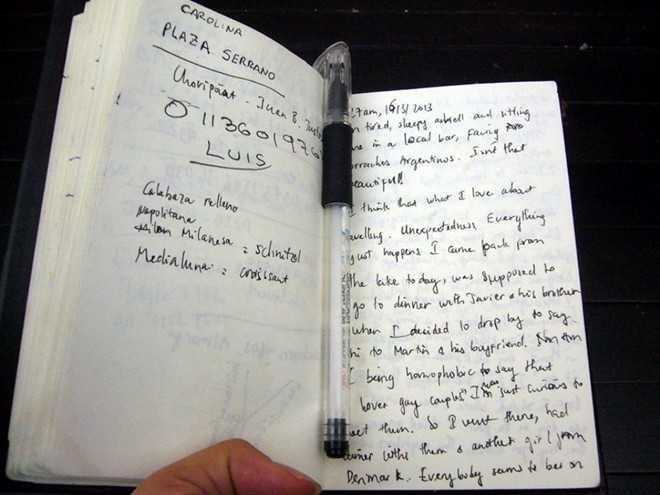 CAROLINA
PLAZA SERRANO
Choripán - Juan B.
0113601976
LUIS
Calabaza relleno
napolitana
Milanesa = schnitzel
Medialuna = croissant
2013
tired, sleepy and sitting
in a local bar, facing
Argentinos. Isn't that
beautiful!
I think that what I love about
travelling. Unexpectedness. Everything
just happens I came back from
the lake today, was supposed to
go to dinner with Javier & his brother
when I decided to drop by to say
hi to Martin & his boyfriend.
I being homophobic to say that
gay couples" I'm just curious to
meet them. So I went there, had
dinner with them & another girl from
Denmark. Everybody seems to be on